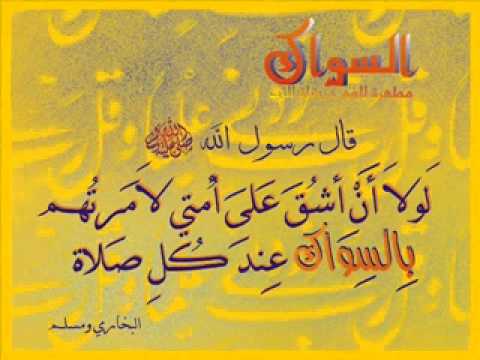 السواك
مطهرة للفم مرضاة للرب
قال رسول الله ﷺ
لَولاَ أَنْ أشُقَ عَلَىَ أُمتي لاَمَرتُهم
بِالسِوَاك عِندَ كُلِ صَلاة
البخاري ومسلم